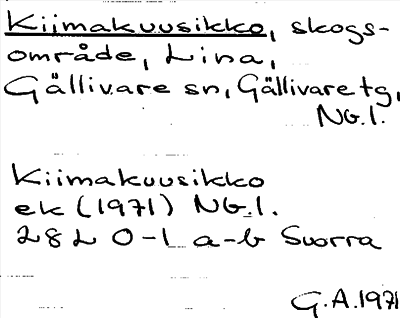 Kiimakuusikko, skogs-
område, Lina,
Gällivare sn, Gällivare tg,
NG.l.
Kiimakuusikko
ek (1971) NG.l.
28L 0-1 a-b Suorra
G.A.1971